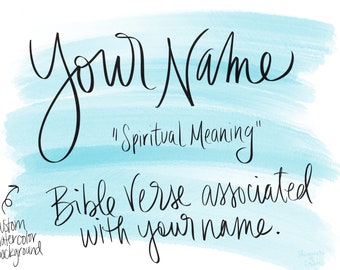 Your Name
"Spiritual Meaning"
Bible Verse associated
with your name.
custom
watercolor
background